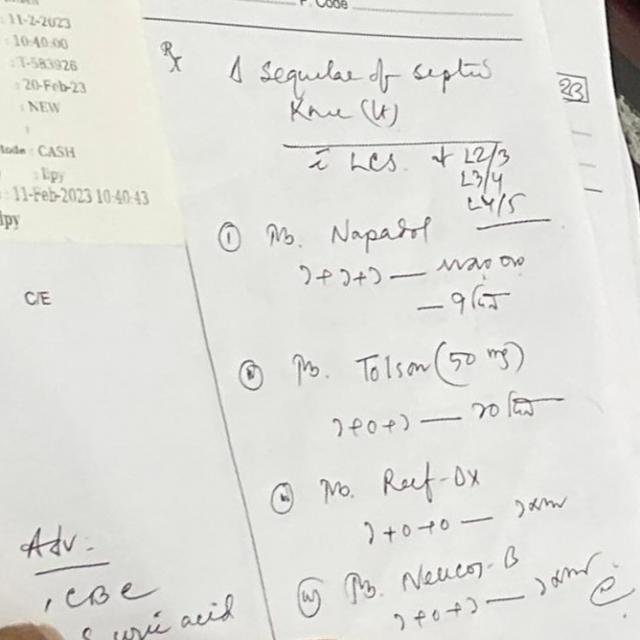 P. Code
: 11-2-2023
: 10:40:00
: T-583926
: 20-Feb-23
: NEW
:
Mode : CASH
: lipy
: 11-Feb-2023 10:40:43
lipy
C/E
Adv:-
CBC
S. uric acid
23
Rx
Δ Sequelae of septic
Knee (Lt)
LCS. L2/3
L3/4
L4/5
① Tab. Napadol
১+১+১ —
— ৭ দিন
Tab. Tolson (50 mg)
১+০+১ — ২০ দিন
Tab. -DX
১+০+০ — ১মাস
Tab. Neucos-B
১+০+১ — ১মাস